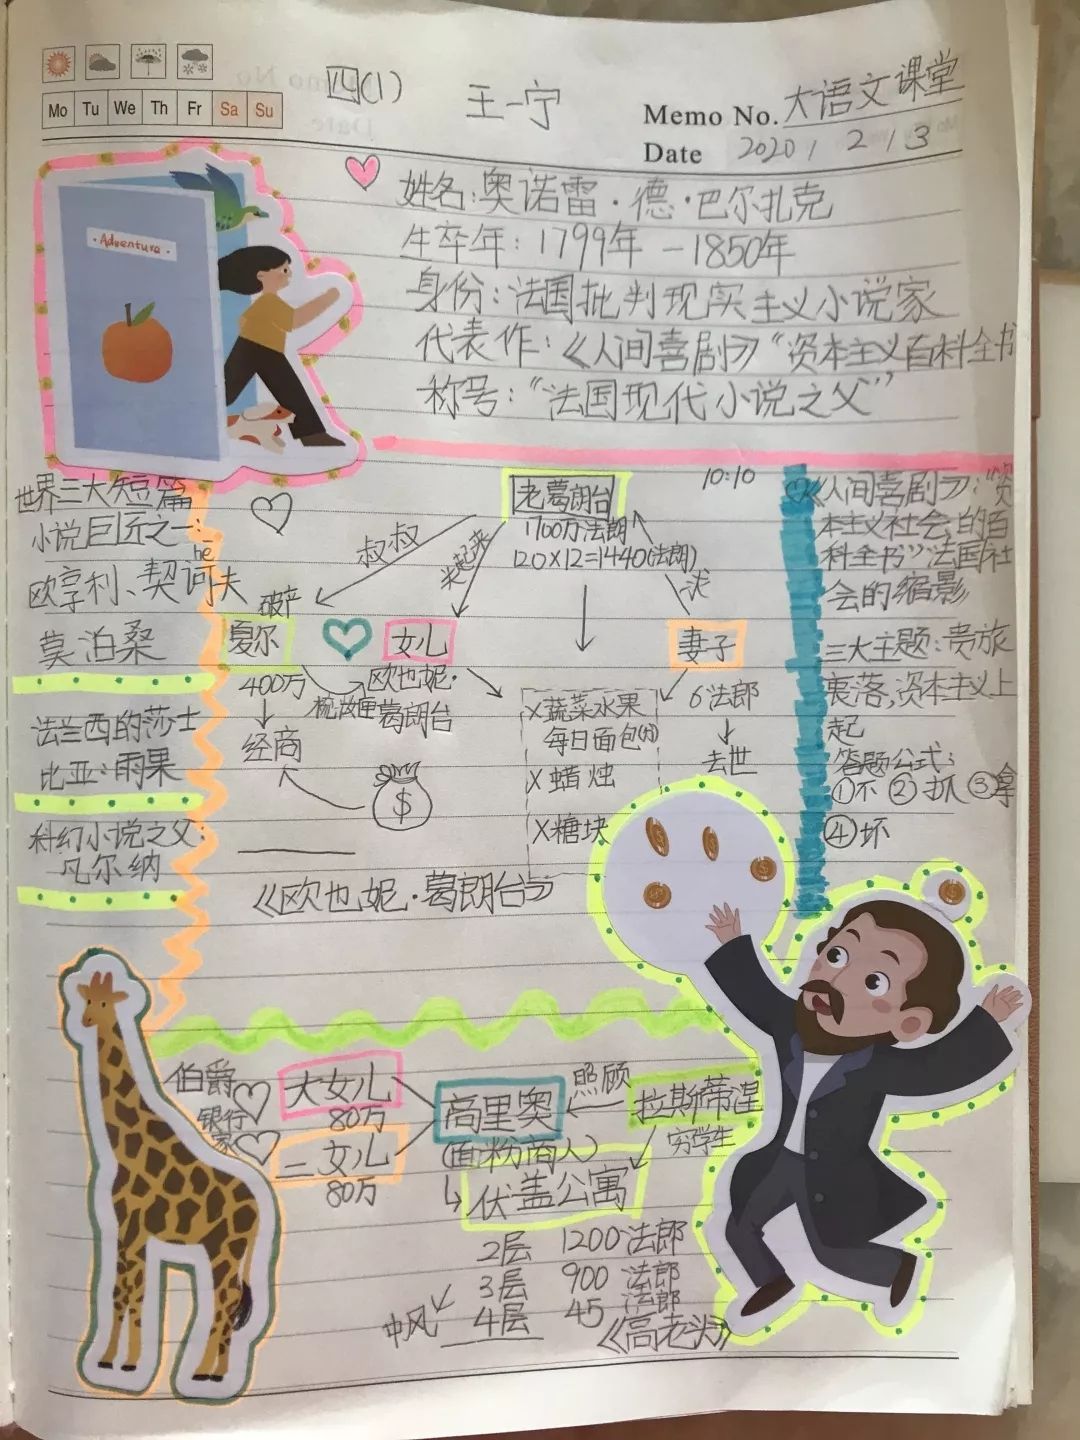 Mo Tu We Th Fr Sa Su
四(1)
王一宁
Memo No. 大语文课堂
Date 2020 / 2 / 3
Adventure
姓名:奥诺雷·德·巴尔扎克
生卒年:1799年-1850年
身份:法国批判现实主义小说家
代表作:《人间喜剧》“资本主义百科全书
称号:“法国现代小说之父”
世界三大短篇
小说巨匠之一:
he
欧亨利、契诃夫
莫泊桑
法兰西的莎士
比亚:雨果
科幻小说之父:
凡尔纳
10:10
老葛朗台
1700万法朗
120×12=1440(法朗)
叔叔
关起来
求
破产
夏尔
400万
经商
梳妆匣
女儿
欧也妮·
葛朗台
$
妻子
6法郎
去世
X蔬菜水果
每日面包
X蜡烛
X糖块
《欧也妮·葛朗台》
《人间喜剧》:“资
本主义社会的百
科全书”法国社
会的缩影
三大主题:贵族
衰落,资本主义上
起
答题公式:
①不 ②抓 ③拿
④坏
伯爵
银行
家
大女儿
80万
二女儿
80万
高里奥
(面粉商人)
照顾
拉斯蒂涅
穷学生
伏盖公寓
2层 1200法郎
3层 900法郎
4层 45法郎
中风
《高老头》